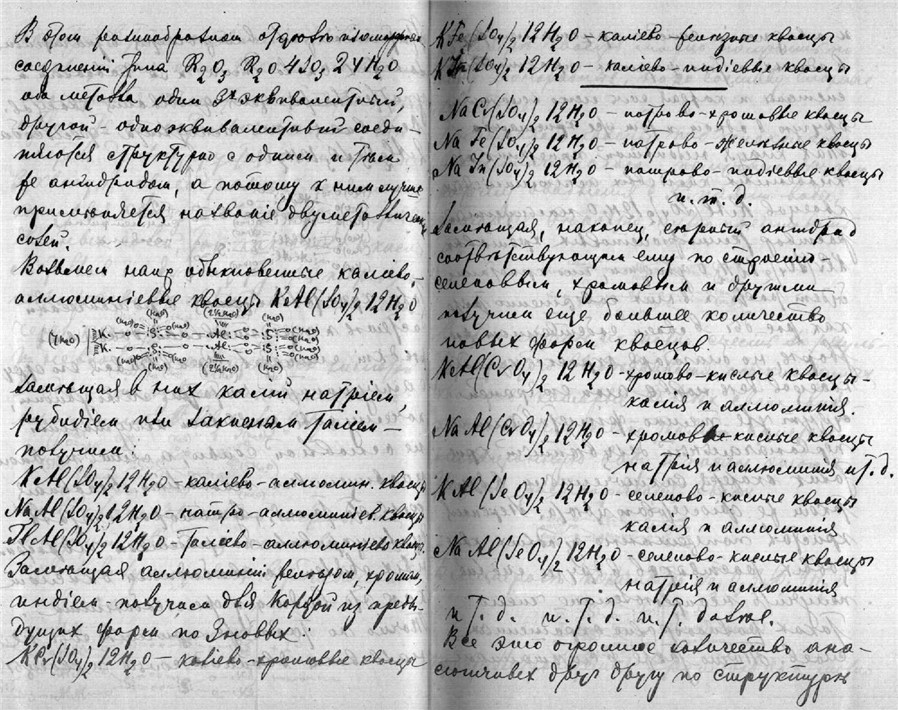 В этом разнообразном отделе изоморфных
соединений типа R₂O₃ R₂O 4SO₃ 24H₂O
оба металла, один 3ˣ эквивалентный,
другой - одноэквивалентный соеди-
няются структурно с одним и тѣм
же ангидридом, а потому к ним лучше
применяется название двуметаллическ.
солей.
Возьмем напр. обыкновенные каліево-
аллюминіевые квасцы KAl(SO₄)₂ 12H₂O
Замещая в них калій натріем,
рубидіем или закисным таліем -
получим:
KAl(SO₄)₂ 12H₂O - каліево-аллюмин. квасцы
NaAl(SO₄)₂ 12H₂O - натро-аллюминіев. квасцы
TlAl(SO₄)₂ 12H₂O - таліево-аллюминіево квасц.
Замещая аллюминій железом, хромом,
индіем получим для каждой из преды-
дущих форм по 3 новых:
KCr(SO₄)₂ 12H₂O - каліево-хромовые квасцы
KFe(SO₄)₂ 12H₂O - каліево-железные квасцы
KIn(SO₄)₂ 12H₂O - каліево-индіевые квасцы
NaCr(SO₄)₂ 12H₂O - натрово-хромовые квасцы
NaFe(SO₄)₂ 12H₂O - натрово-железные квасцы
NaIn(SO₄)₂ 12H₂O - натрово-индіевые квасцы
и. т. д.
Замещая, наконец, серный ангидрид
соответствующим ему по строению -
селеновым, хромовым и другими
получим еще большее количество
новых форм квасцов.
KAl(CrO₄)₂ 12H₂O - хромово-кислые квасцы -
калія и аллюминія.
NaAl(CrO₄)₂ 12H₂O - хромово-кислые квасцы
натрія и аллюминія и т. д.
KAl(SeO₄)₂ 12H₂O - селеново-кислые квасцы
калія и аллюминія
NaAl(SeO₄)₂ 12H₂O - селеново-кислые квасцы
натрія и аллюминія
и т. д. и. т. д. и. т. далее.
Все это огромное количество ана-
логичных друг другу по структурѣ